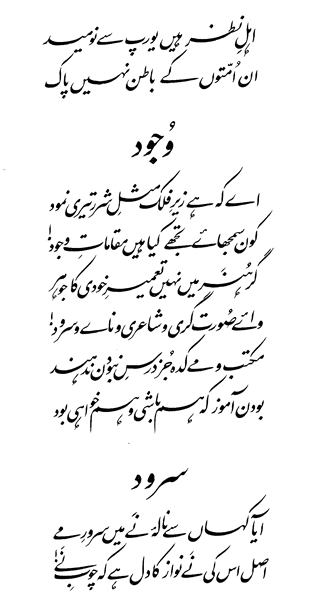 اہلِ نظر ہیں یورپ سے نومید
ان اُمّتوں کے باطن نہیں پاک
وُجود
اے کہ ہے زیرِ فلک مثلِ شرر تیری نمود
کون سمجھائے تجھے کیا ہیں مقاماتِ وجود!
گر ہُنر میں نہیں تعمیرِ خودی کا جوہر
وائے صُورت گری و شاعری و ناے و سرود!
مکتب و مے کدہ جُز درسِ نبودن ندہند
بودن آموز کہ ہم باشی و ہم خواہی بود
سرود
آیا کہاں سے نالۂ نَے میں سرورِ مے
اصل اس کی نَے نواز کا دل ہے کہ چوبِ نَے!